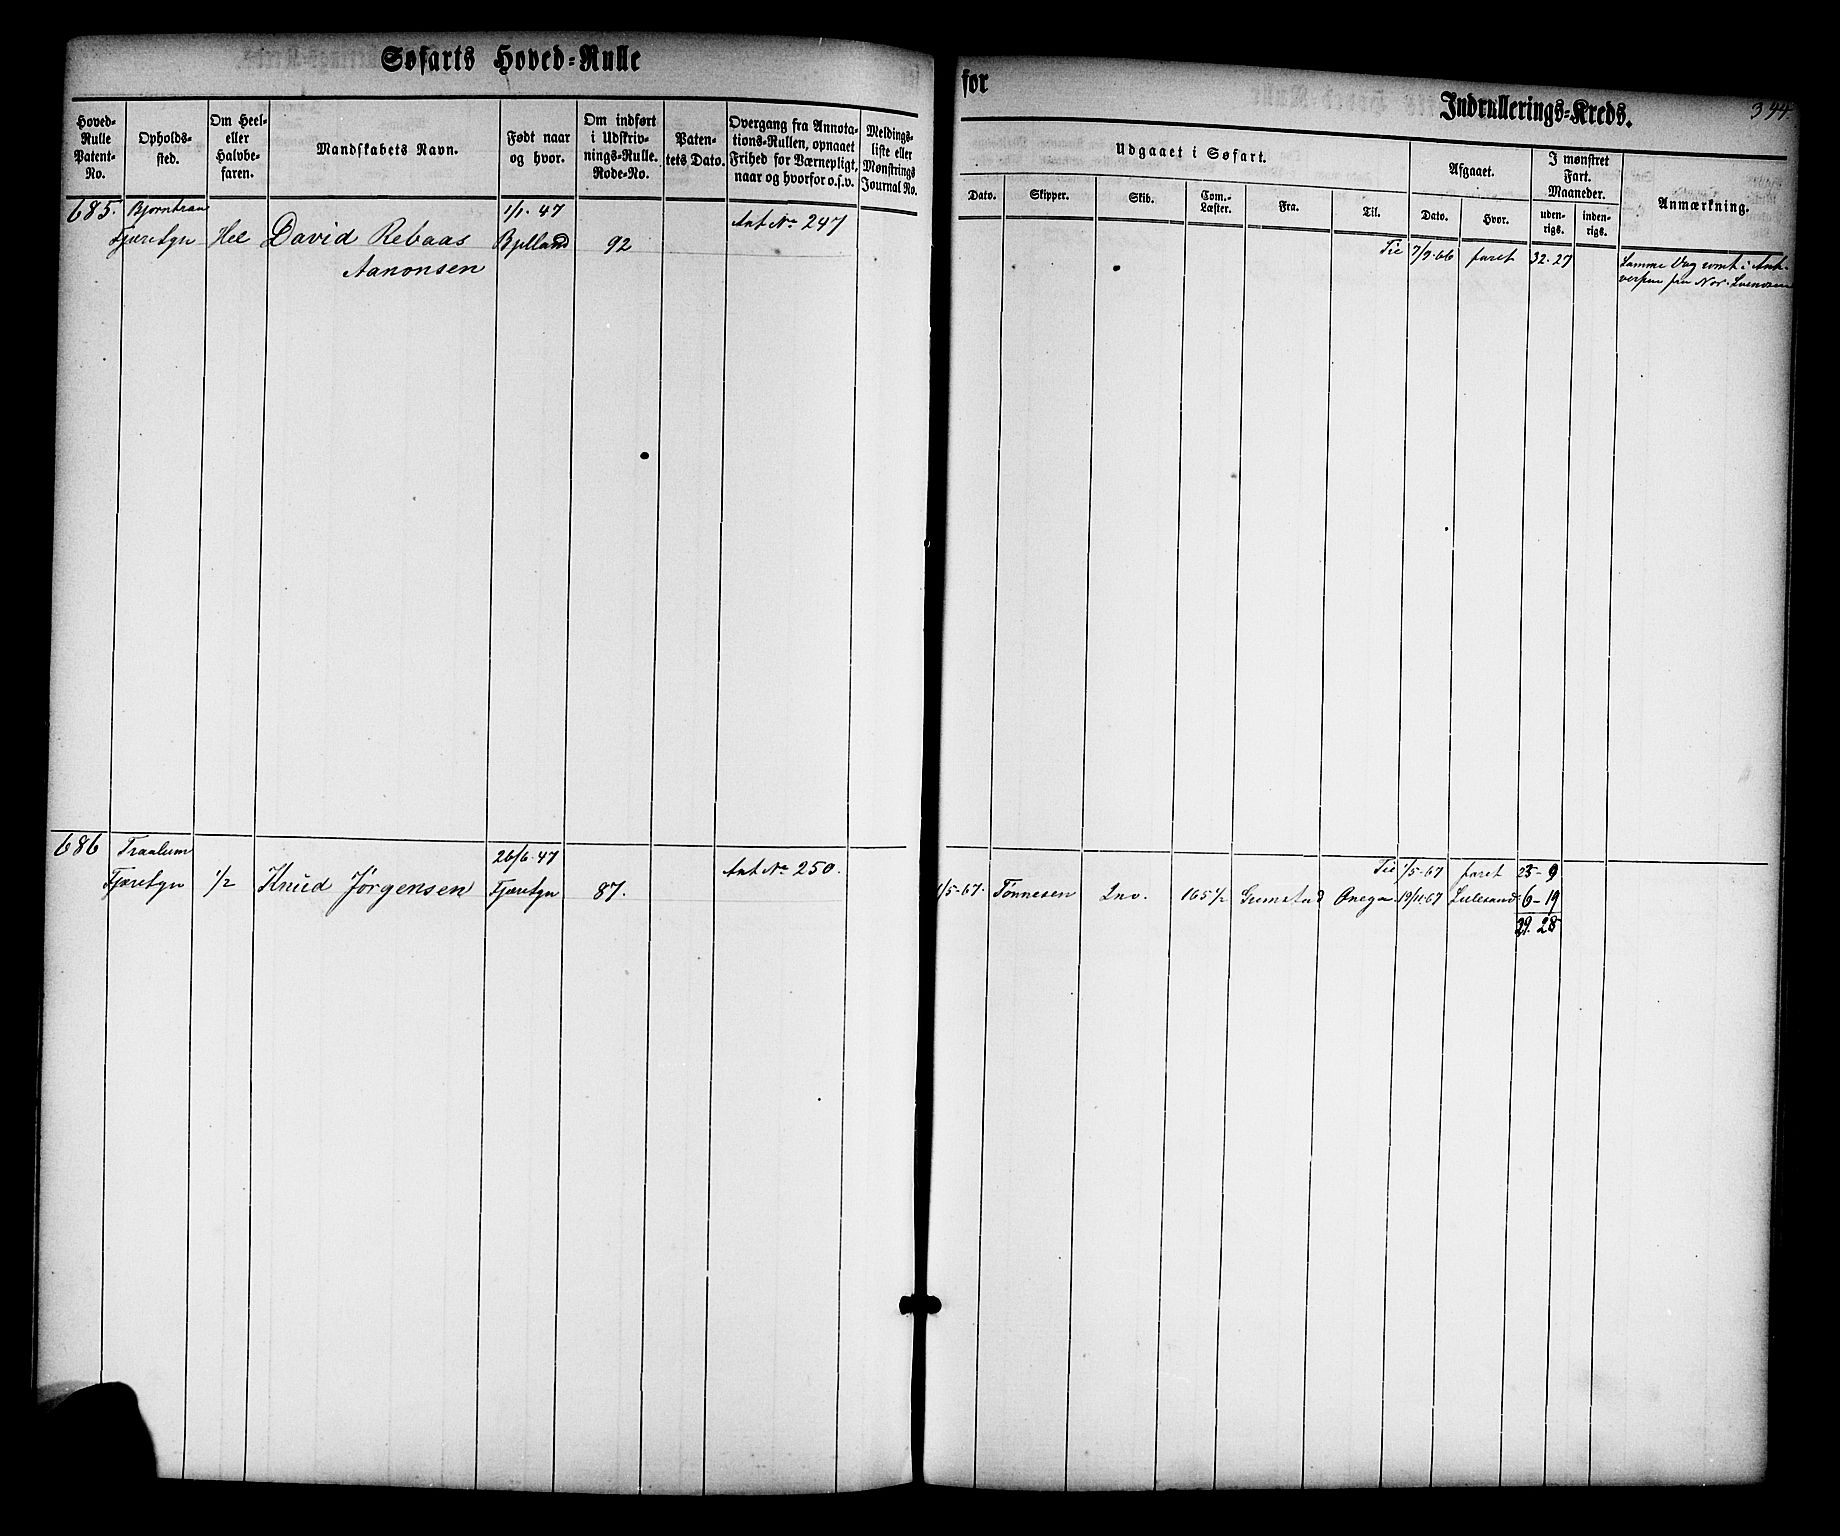 Søfarts Hoved-Rulle
for
Indrullerings-Kreds.
394
Hoved-Rulle Patent-No.
Opholds-sted.
Om Heel- eller Halvbe-faren.
Mandskabets Navn.
Født naar og hvor.
Om indført i Udskriv-nings-Rulle. Rode-No.
Paten-tets Dato.
Overgang fra Annota-tions-Rullen, opnaaet Frihed for Værnepligt, naar og hvorfor o.s.v.
Meldings-liste eller Mønstrings Journal No.
Udgaaet i Søfart.
Dato.
Skipper.
Skib.
Com.-Læster.
Fra.
Til.
Afgaaet.
Dato.
Hvor.
I mønstret Fart. Maaneder.
uden-rigs.
inden-rigs.
Anmærkning.
685. Bjorntran 1/1. 47 Ant No 247
Fjæresgn Hel David Rebaas Bjelland 92
Aanonsen
Til 7/9.66 faret 32. 27 Samme Dag rømt i Ant-
verpen fra Nor. Svendsen
686 Traalum 26/6.47 Ant No 250.
Fjæresgn 1/2 Knud Jørgensen Fjæresgn 87.
Til 1/5-67 faret 23-9
1/5-67. Tønnesen Ino. 165 1/2 Grimstad Onega 19/11.67 Lillesand 6-19
29. 28